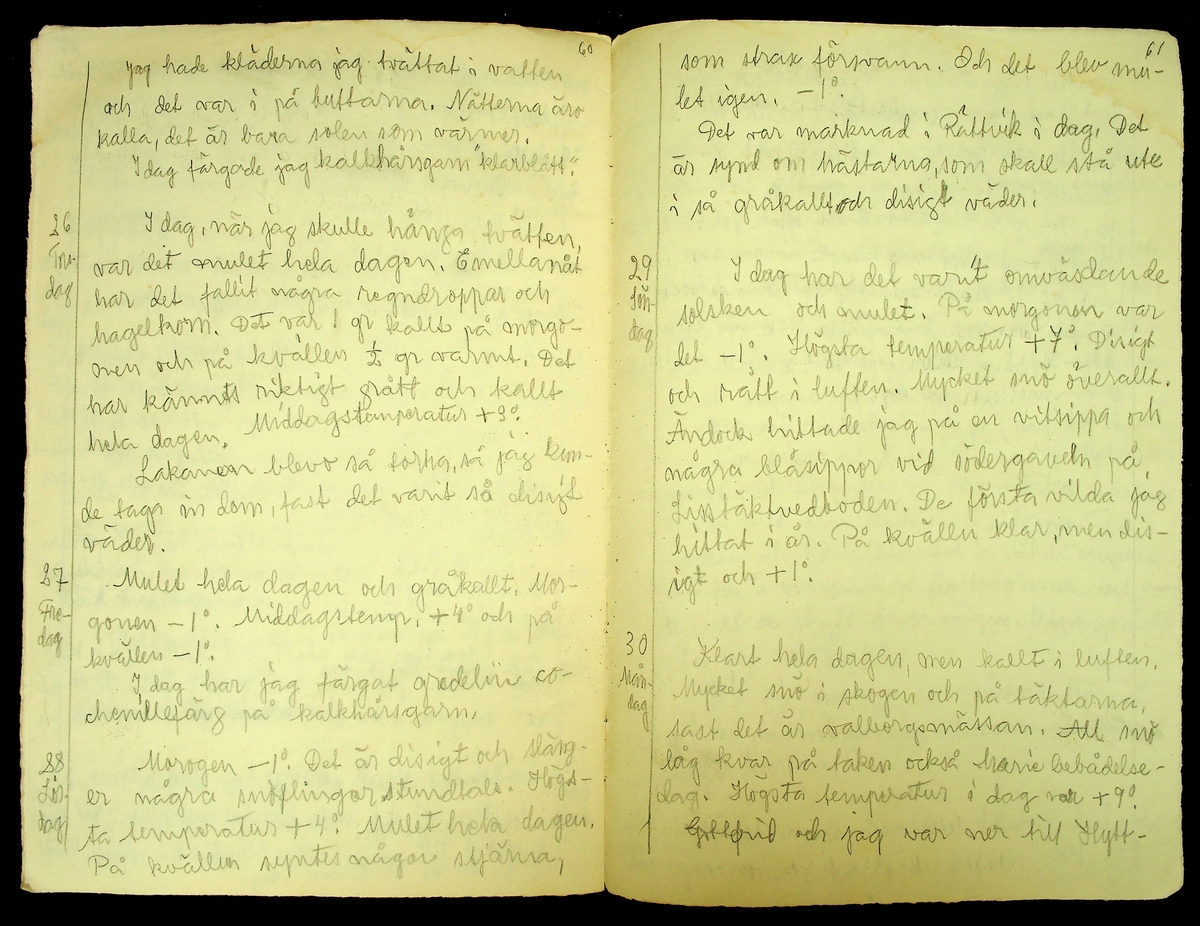 60
Jag hade kläderna jag tvättat i vatten
och det var i på buttarna. Nätterna äro
kalla, det är bara solen som värmer.
I dag färgade jag kalkhårsgarn "klarblått".
26
Tors-
dag
I dag, när jag skulle hänga tvätten,
var det mulet hela dagen. Emellanåt
har det fallit några regndroppar och
hagelkorn. Det var 1 gr kallt på morgo-
nen och på kvällen ½ gr varmt. Det
har kännts riktigt grått och kallt
hela dagen. Middagstemperatur +3°.
Lakanen blevo så torra, så jag kun-
de taga in dom, fast det varit så disigt
väder.
27
Fre-
dag
Mulet hela dagen och gråkallt. Mor-
gonen -1°. Middagstemp. +4° och på
kvällen -1°.
I dag har jag färgat gredelin co-
chenillefärg på kalkhårsgarn.
28
Lör-
dag
Morogen -1°. Det är disigt och släng-
er några snöflingor stundtals. Högs-
ta temperatur +4°. Mulet hela dagen.
På kvällen syntes någon stjärna,
61
som strax försvann. Och det blev mu-
let igen. -1°.
Det var marknad i Rättvik i dag. Det
är synd om hästarna, som skall stå ute
i så gråkallt och disigt väder.
29
Sön-
dag
I dag har det varit omväxlande
solsken och mulet. På morgonen var
det -1°. Högsta temperatur +7°. Disigt
och rått i luften. Mycket snö överallt.
Ändock hittade jag på en vitsippa och
några blåsippor vid södergaveln på
Lisstäktvedboden. De första vilda jag
hittat i år. På kvällen klar, men dis-
igt och +1°.
30
Mån-
dag
Klart hela dagen, men kallt i luften.
Mycket snö i skogen och på täktarna,
fast det är valborgsmässan. All snö
låg kvar på taken också Marie bebådelse-
dag. Högsta temperatur i dag var +9°.
och jag var ner till Hytt-